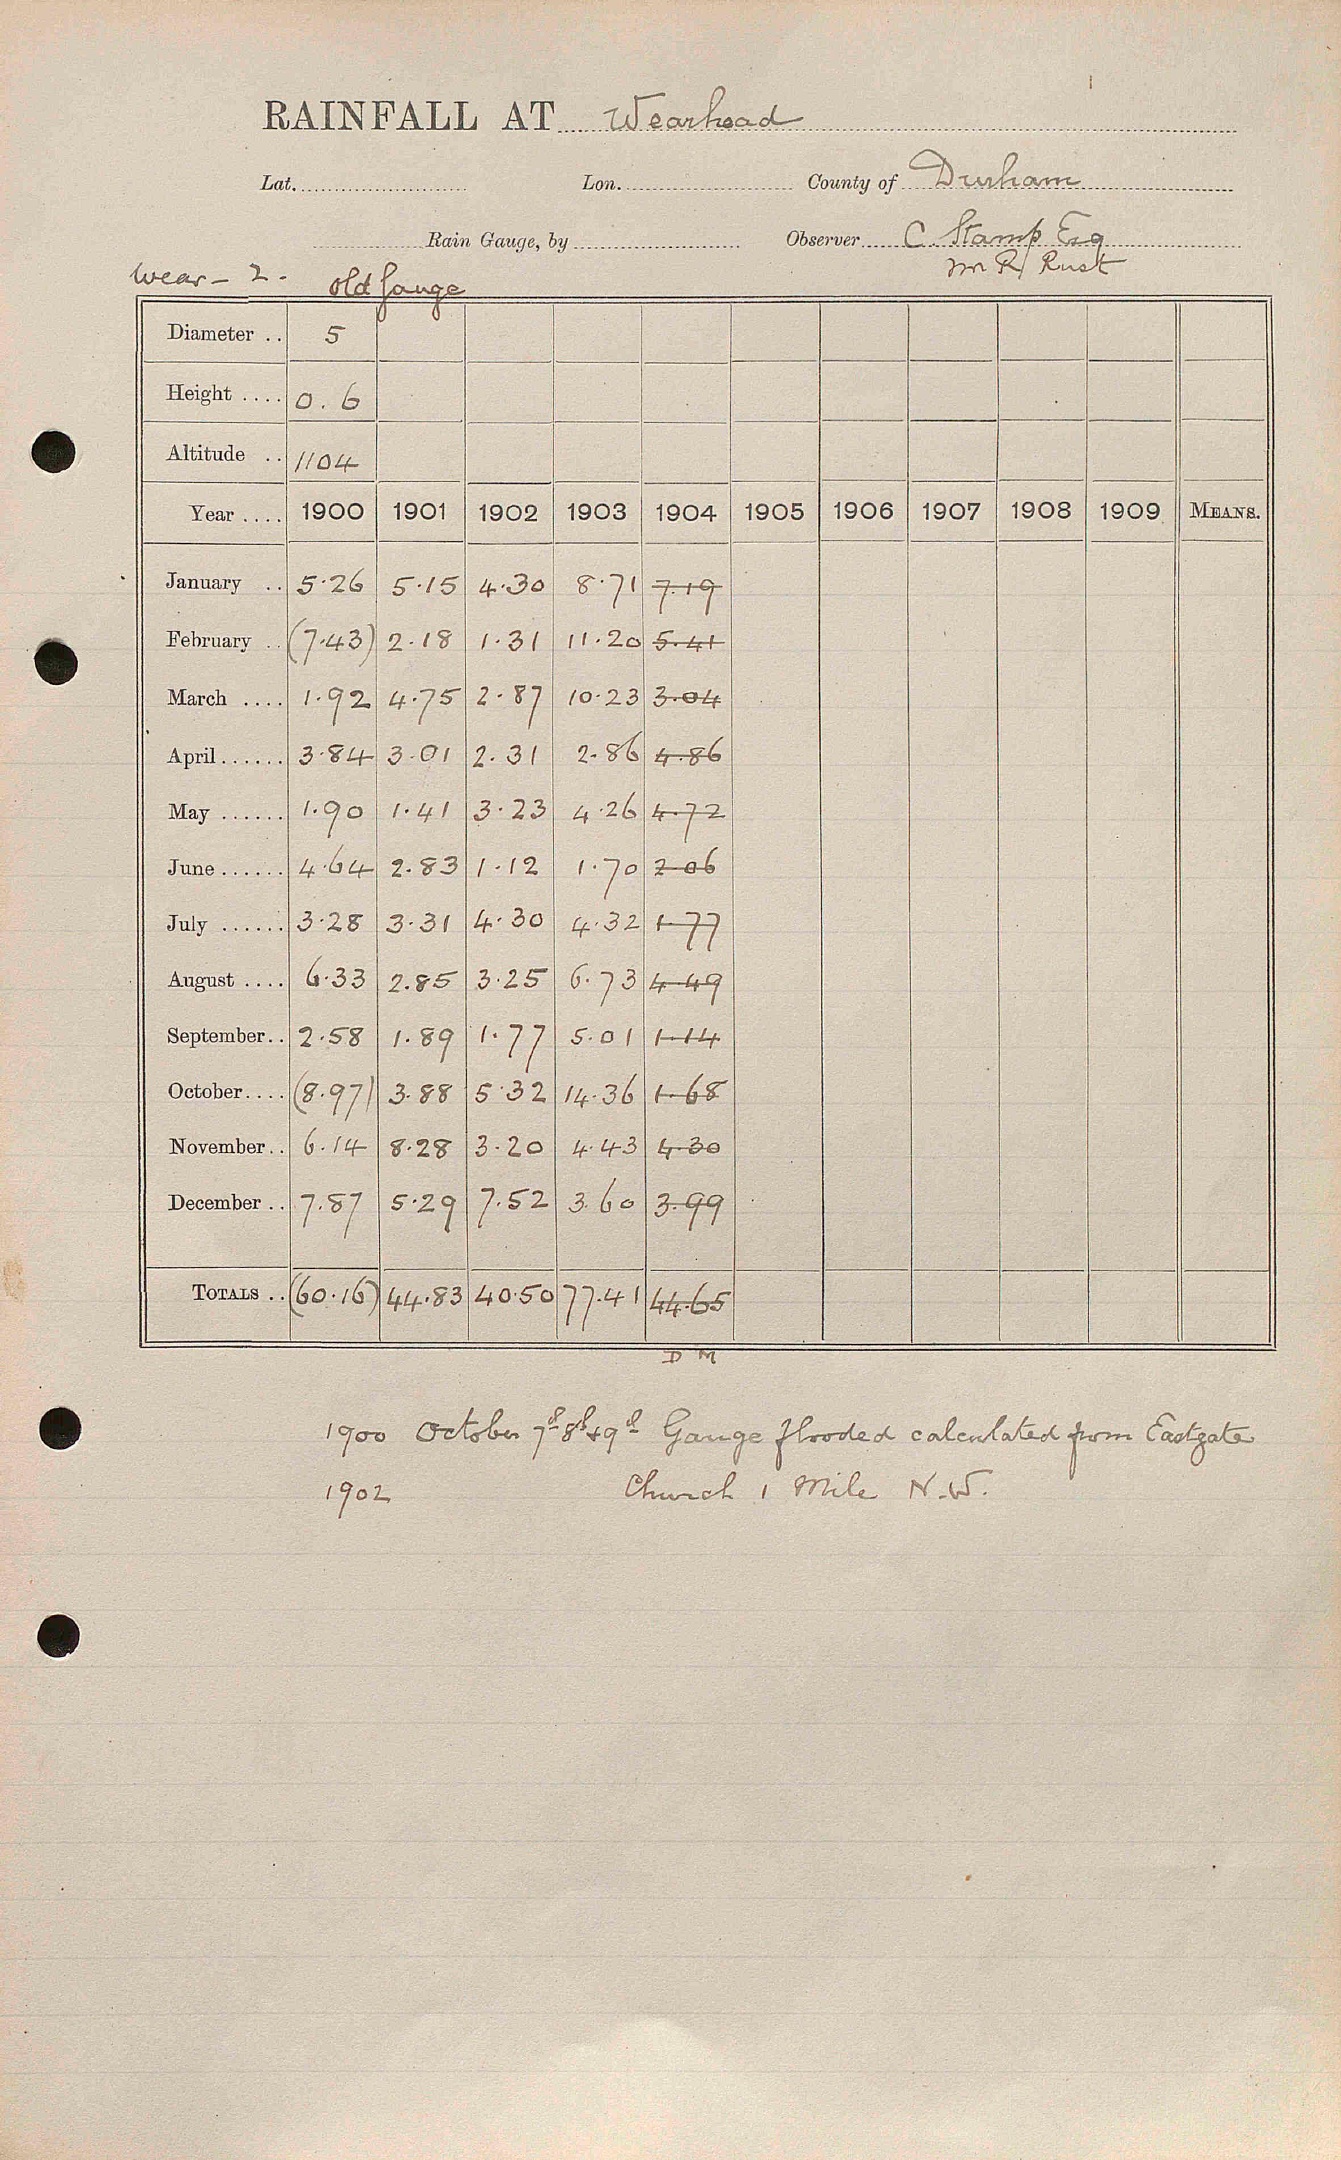 RAINFALL AT Wearhead
Lat. Lon. County of Durham
Rain Gauge, by Observer C. Stamp Esq
Mr R Rust
Wear - 2. old Gauge
Diameter .. 5
Height .... 0.6
Altitude .. 1104
Year .... 1900 1901 1902 1903 1904 1905 1906 1907 1908 1909 MEANS.
January .. 5.26 5.15 4.30 8.71 7.19
February .. (7.43) 2.18 1.31 11.20 5.41
March .... 1.92 4.75 2.87 10.23 3.04
April ...... 3.84 3.01 2.31 2.86 4.86
May ...... 1.90 1.41 3.23 4.26 4.72
June ...... 4.64 2.83 1.12 1.70 2.06
July ...... 3.28 3.31 4.30 4.32 1.77
August .... 6.33 2.85 3.25 6.73 4.49
September .. 2.58 1.89 1.77 5.01 1.14
October .... (8.97) 3.88 5.32 14.36 1.68
November .. 6.14 8.28 3.20 4.43 4.30
December .. 7.87 5.29 7.52 3.60 3.99
TOTALS .. (60.16) 44.83 40.50 77.41 44.65
D M
1900 October 7th 8th & 9th Gauge flooded calculated from Eastgate
1902 Church 1 Mile N.W.